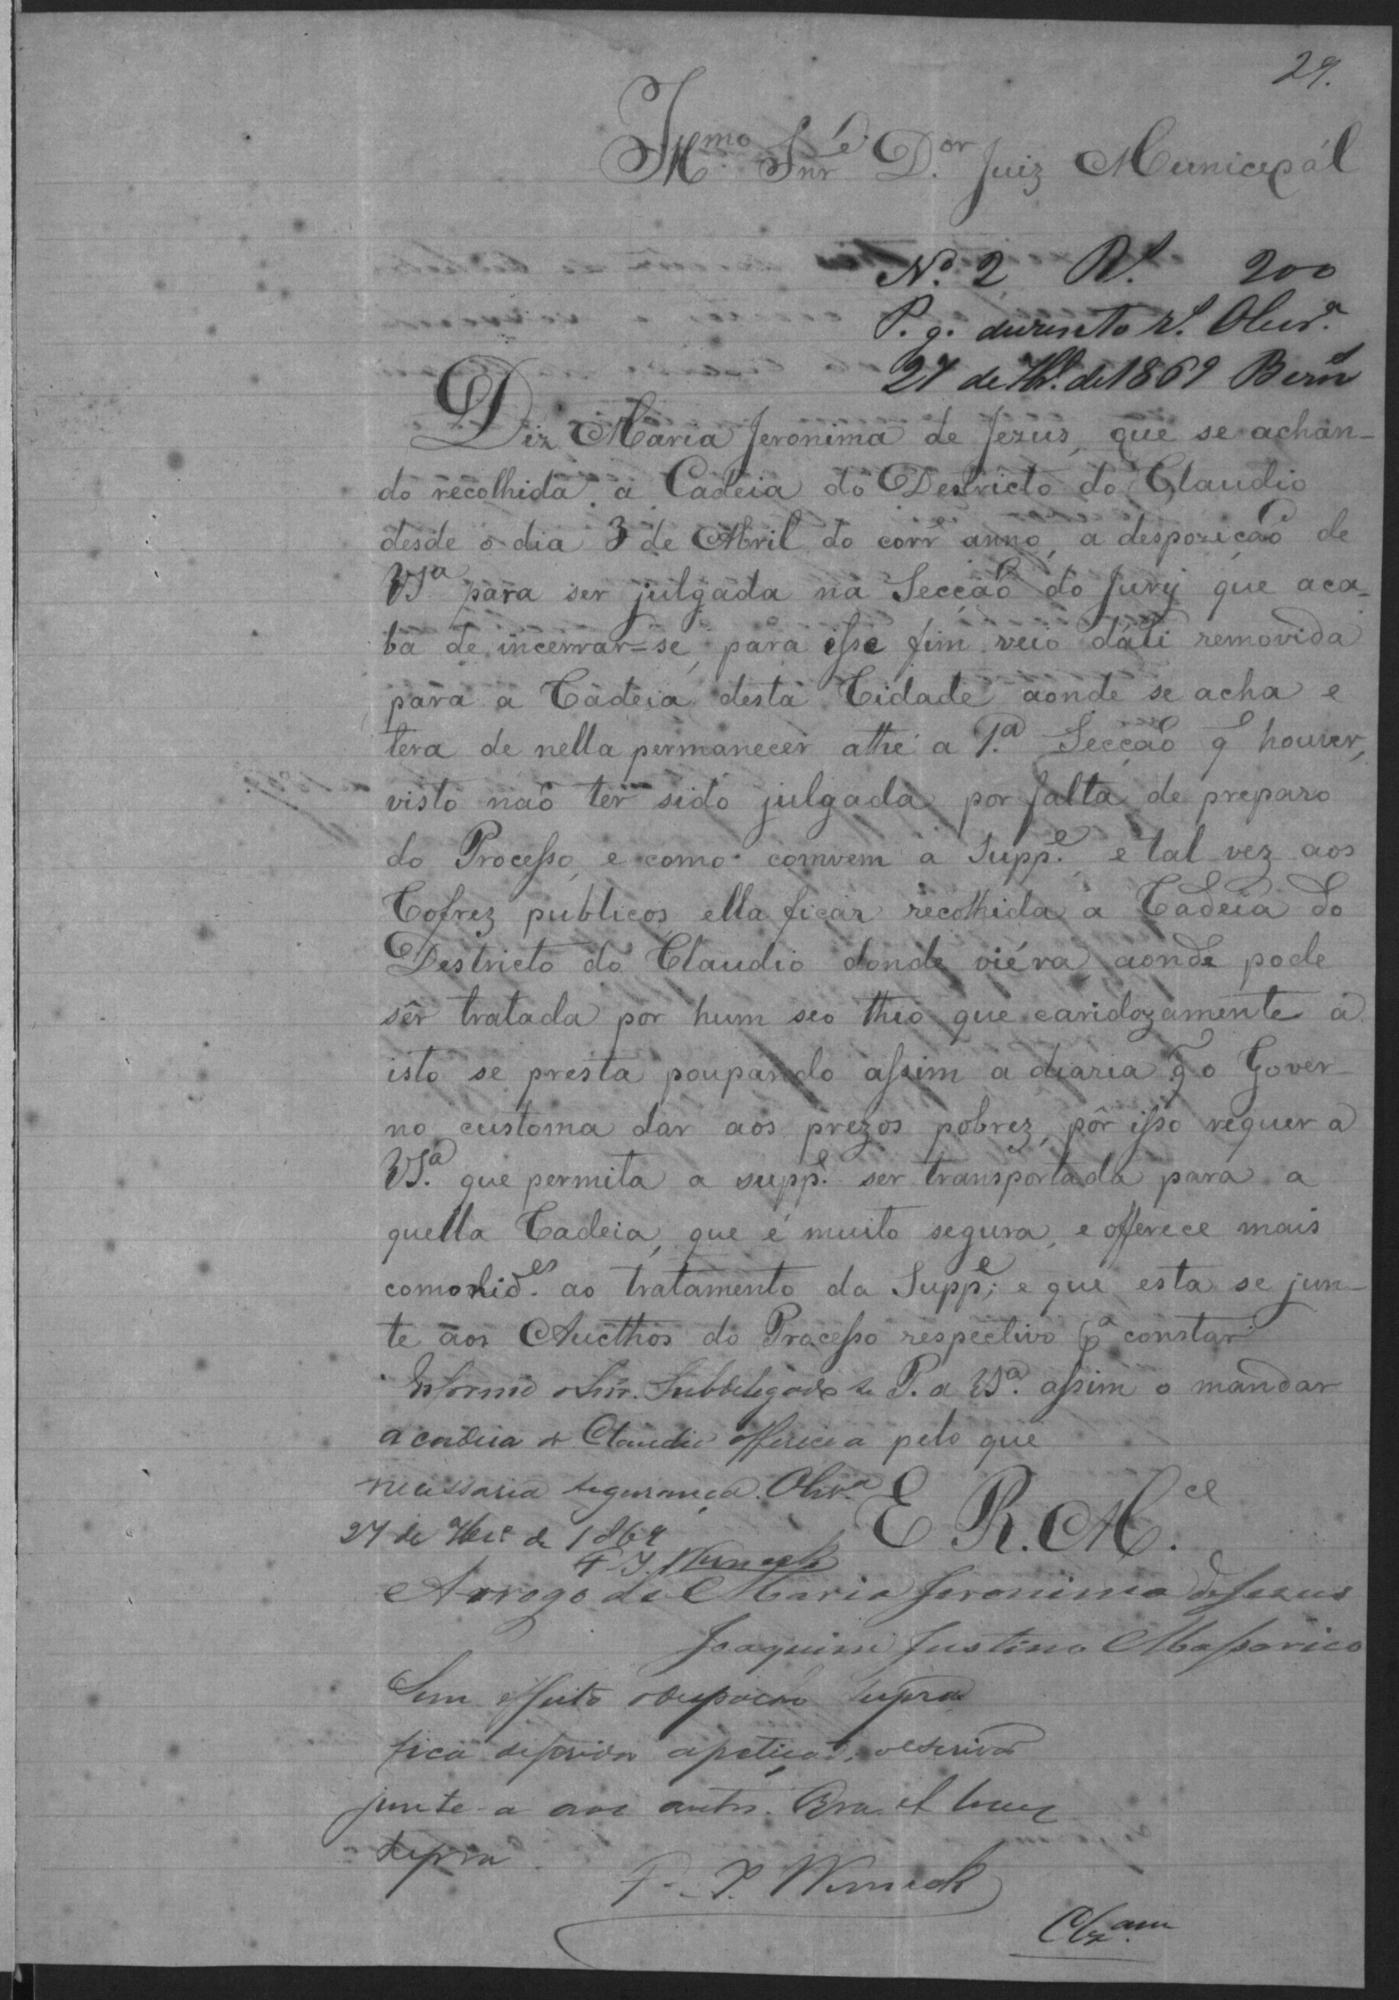 29.
Illmo Snre D.or Juiz Municipál
No. 2 Rs. 200
P. g. duzentos rs. Olivra.
27 de 7br. de 1869
Diz Maria Jeronima de Jezus, que se achan-
do recolhida a Cadeia do Destricto do Claudio
desde o dia 3 de Abril do corre anno, a despozição de
VSa para ser julgada na Secção do Jury que aca-
ba de incerrar=se, para esse fim veio dáli removida
para a Cadeia desta Cidade aonde se acha e
tera de nella permanecer athé a 1.a Secção q houver,
visto não ter sido julgada por falta de preparo
do Processo, e como comvem a Suppe. e tal vez aos
Cofrez publicos ella ficar recolhida a Cadeia do
Destricto do Claudio donde viéra aonde pode
sêr tratada por hum seo thio que caridozamente a
isto se presta poupando assim a diaria q o Gover-
no customa dar aos prezos pobrez, pôr isso requer a
VS.a que permita a suppe. ser transportada para a
quella Cadeia, que é muito segura, e offerece mais
comodides. ao tratamento da Suppe; e que esta se jun-
te aos Aucthos do Processo respectivo pa constar
P. a VSa. assim o mandar
pelo que
E. R. M.ce
Informe o Snr. Subdelegado se
a cadeia do Claudio offerece a
necessaria segurança. Olivra
27 de 7bro de 1869
F. P. Werneck
Arrogo de Maria Jeronima de Jezus
Joaquim Justino
Sem effeito o despacho supra
fica deferida a petição, o escrivão
junte-a aos autos.
supra
F. P. Werneck